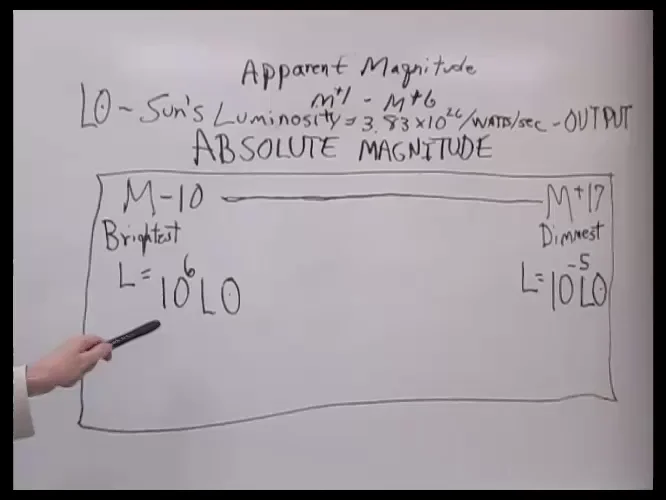 Apparent Magnitude
m+1 - m+6
L⊙ - Sun's Luminosity = 3.83 x 10²⁶/WATTS/sec - OUTPUT
ABSOLUTE MAGNITUDE
M-10 ——— M+17
Brightest Dimmest
L = 10⁶ L⊙ L = 10⁻⁵ L⊙